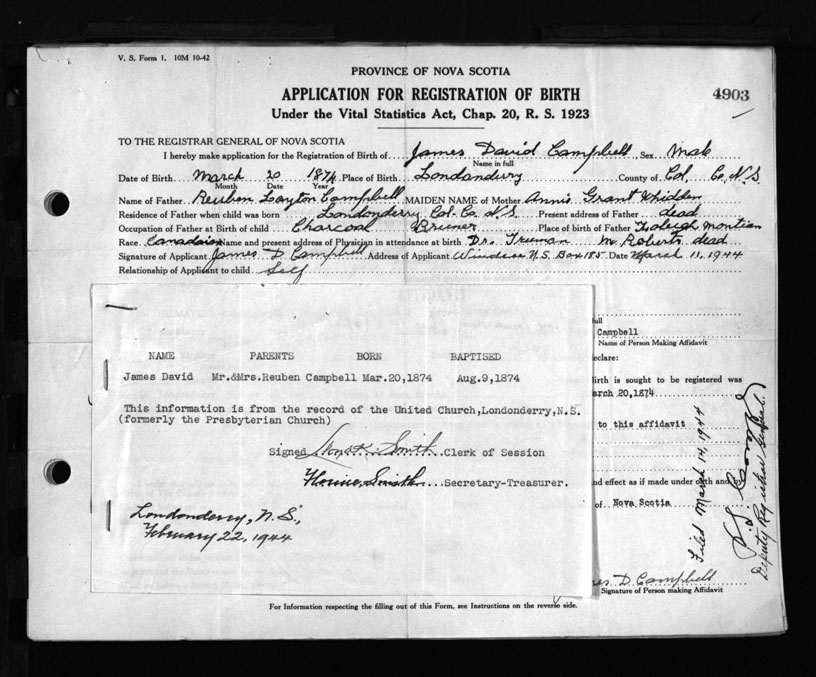 V. S. Form 1. 10M 10-42
PROVINCE OF NOVA SCOTIA
APPLICATION FOR REGISTRATION OF BIRTH
4903
Under the Vital Statistics Act, Chap. 20, R. S. 1923
TO THE REGISTRAR GENERAL OF NOVA SCOTIA
I hereby make application for the Registration of Birth of James David Campbell Sex Male
Name in full
Date of Birth March 20 1874 Place of Birth Londonderry County of Col. Co. N.S
Month Date Year
Name of Father Reuben Layton Campbell MAIDEN NAME of Mother Annis Grant Whidden
Residence of Father when child was born Londonderry Col. Co. N.S. Present address of Father dead
Occupation of Father at Birth of child Charcoal Burner Place of birth of Father
Race Canadian Name and present address of Physician in attendance at birth Dr. Truman M Roberts dead
Signature of Applicant James D Campbell Address of Applicant Windsor N.S. Box 185 Date March 11, 1944
Relationship of Applicant to child Self
full
Campbell
Name of Person Making Affidavit
declare:
NAME PARENTS BORN BAPTISED
James David Mr.&Mrs.Reuben Campbell Mar.20,1874 Aug.9,1874
Birth is sought to be registered was
March 20,1874
This information is from the record of the United Church,Londonderry,N.S.
(formerly the Presbyterian Church)
to this affidavit
Signed Smith Clerk of Session
Smith Secretary-Treasurer.
and effect as if made under oath and by
of Nova Scotia
Londonderry, N.S.,
February 22, 1944
Filed March 14, 1944
Deputy Registrar General.
es D. Campbell
Signature of Person making Affidavit
For Information respecting the filling out of this Form, see Instructions on the reverse side.